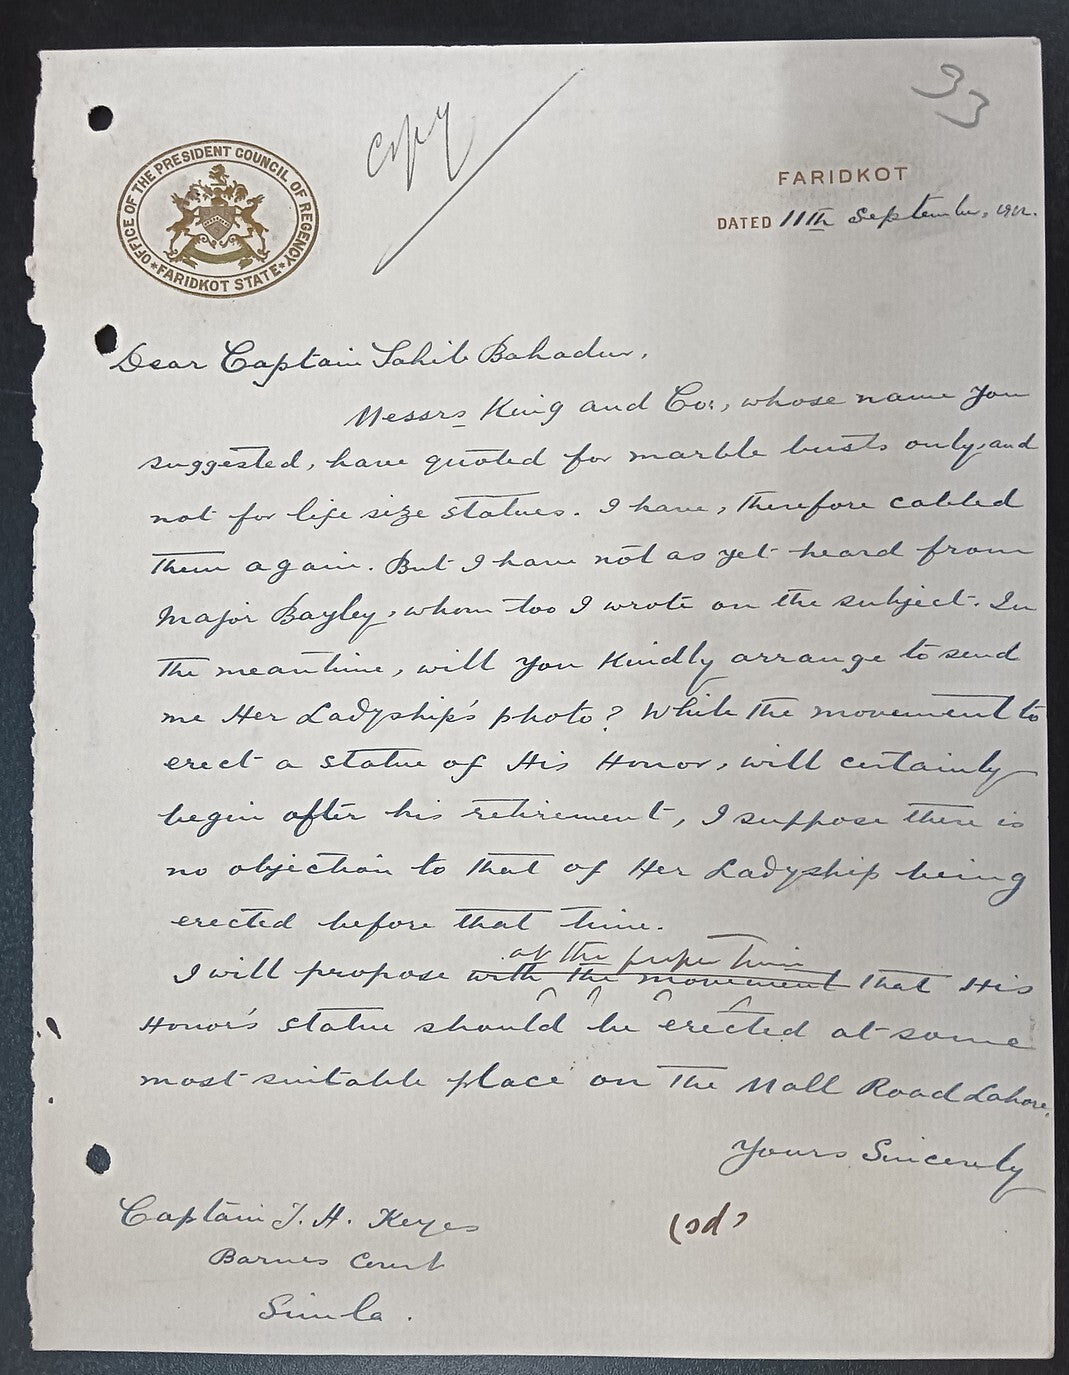 33
Copy
OFFICE OF THE PRESIDENT COUNCIL OF REGENCY
*FARIDKOT STATE*
FARIDKOT
DATED 11th September, 1912.
Dear Captain Sahib Bahadur,
Messrs King and Co:, whose name you
suggested, have quoted for marble busts only and
not for life size statues. I have, therefore cabled
them again. But I have not as yet heard from
Major Bayley, whom too I wrote on the subject. In
the meantime, will you kindly arrange to send
me Her Ladyship's photo? While the movement to
erect a statue of His Honor, will certainly
begin after his retirement, I suppose there is
no objection to that of Her Ladyship being
erected before that time.
at the proper time
I will propose with the movement that His
Honor's statue should be erected at some
most suitable place on the Mall Road Lahore.
Yours Sincerely
(sd)
Captain T. H. Keyes
Barnes Court
Simla.